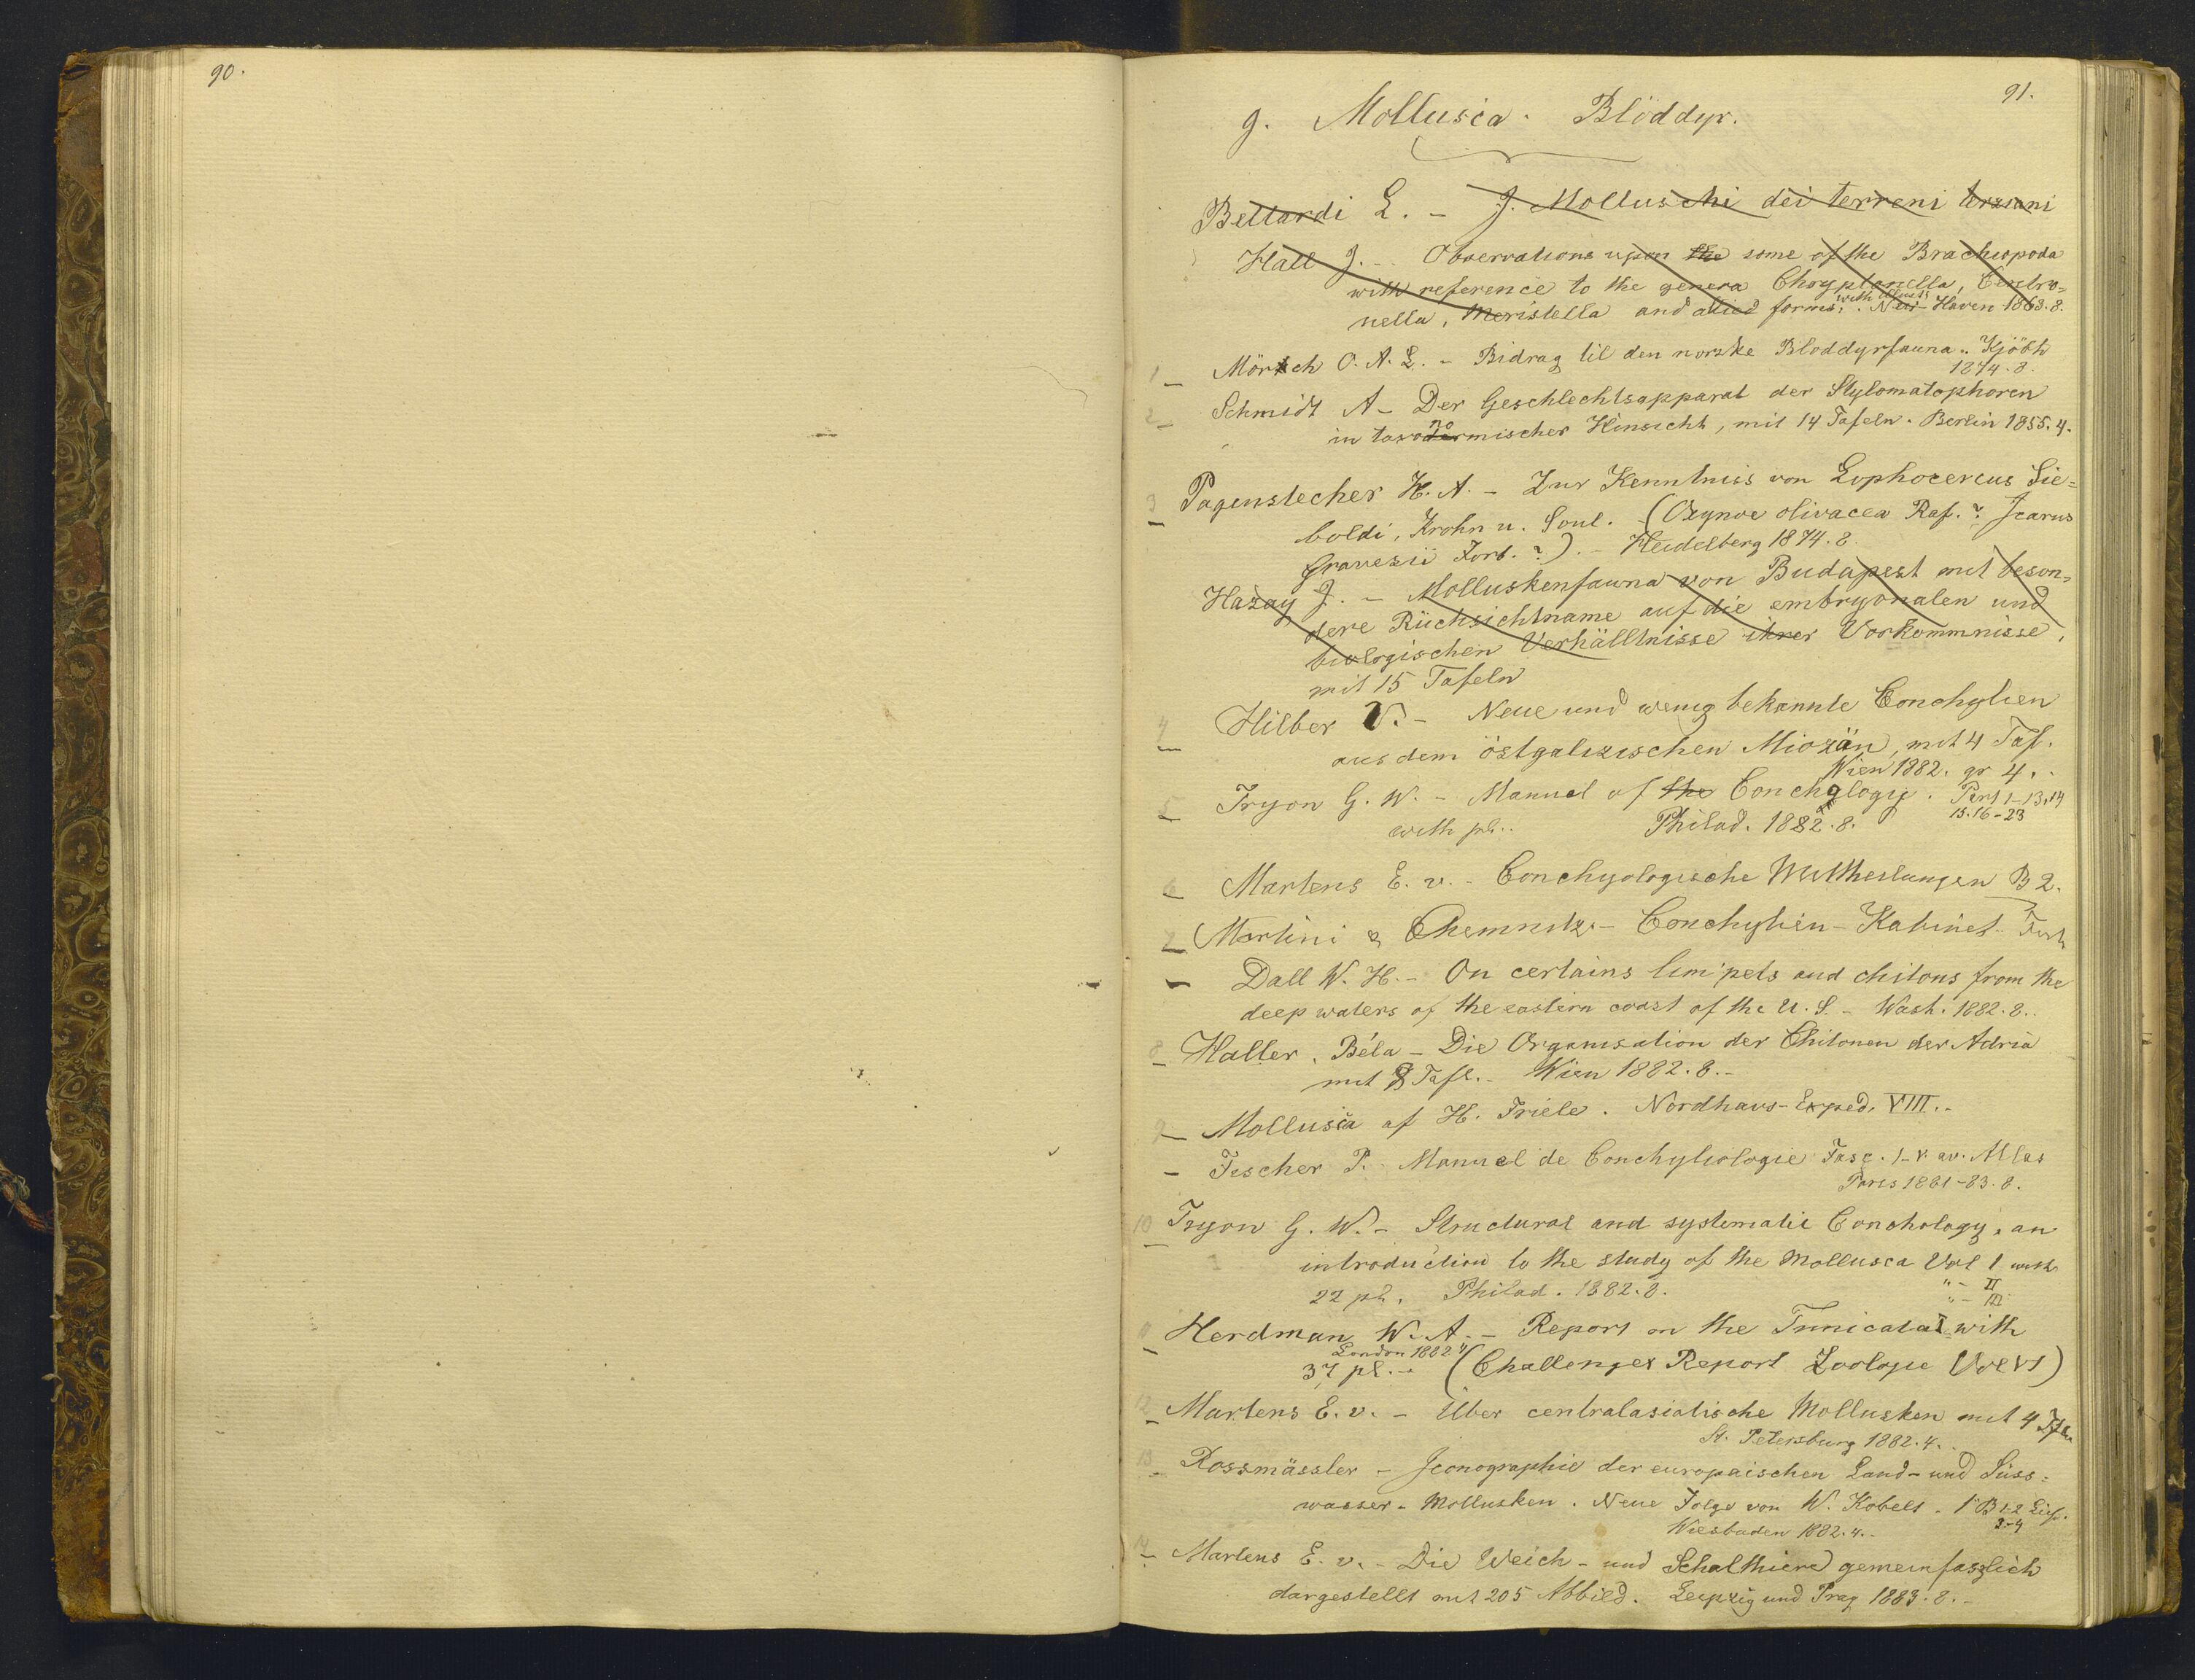 90.
91.
g. Mollusca. Blöddyr.
Bellardi L. - I. Molluschi dei terreni terziani
Hall J. - Observations upon the some of the Brachiopoda
with reference to the genera Chryptonella, Centro=
nella, Meristella and alied forms. with New-Haven 1863.8.
1 - Mörch O. A. L. - Bidrag til den norske Bloddyrfauna. Kjöbh
1874.8.
2 - Schmidt A - Der Geschlechtsapparat der Stylomatophoren
in taxonomischer Hinsicht, mit 14 Tafeln. Berlin 1855.4.
3 - Pagenstecher H. A. - Zur Kenntniss von Lophocercus Sie=
boldi, Krohn u. Soul. - (Oxynoe olivacea Raf.? Icarus
Gravesii Forb.?). - Heidelberg 1874.8.
Hazay J. - Molluskenfauna von Budapest mit beson=
dere Rüchsichtname auf die embryonalen und
biologischen Verhälltnisse ihrer Vorkommnisse,
mit 15 Tafeln
4 - Hilber V. - Neue und wenig bekannte Conchylien
aus dem östgalizischen Miozän, mit 4 Taf.
Wien 1882. gr 4.
5 - Tryon G. W. - Manuel of the Conchology. Part 1-13,14
15.16-23
with pl.. Philad. 1882.8.
6 - Martens E. v. - Conchyologische Mittheilungen B 2.
7 - Martini & Chemnitz - Conchylien-Kabinet
- Dall W. H. - On certains limpets and chitons from the
deep waters of the eastern coast of the U. S. - Wash. 1882.8..
8 - Haller, Béla - Die Organisation der Chitonen der Adria
mit Tafl. - Wien 1882.8.-
9 - Mollusca af H. Friele. Nordhavs-Exped. VIII..
- Fischer P. - Manuel de Conchyliologie Fasc. 1-V. av. Atlas
Paris 1881-83.8.
10 - Tryon G. W. - Structural and systematic Conchology, an
introduction to the study of the Mollusca Vol 1 with
22 pl. Philad. 1882.8. " - II
" - III
11 - Herdman W. A. - Report on the Tunicata I with
London 1882 4
37 pl. - (Challenger Report Zoologie Vol VI)
12 - Martens E. v. - Über centralasiatische Mollusken mit 4 Tfln
St. Petersburg 1882.4..
13 - Rossmässler - Iconographie der europaischen Land- und Süss=
wasser-Mollusken. Neue Folge von W. Kobelt. 1 B 1-2 Lief.
3-4
Wiesbaden 1882.4..
14 - Martens E. v. - Die Weich- und Schalthiere gemeinfaszlich
dargestellt mit 205 Abbild. Leipzig und Prag 1883.8.-